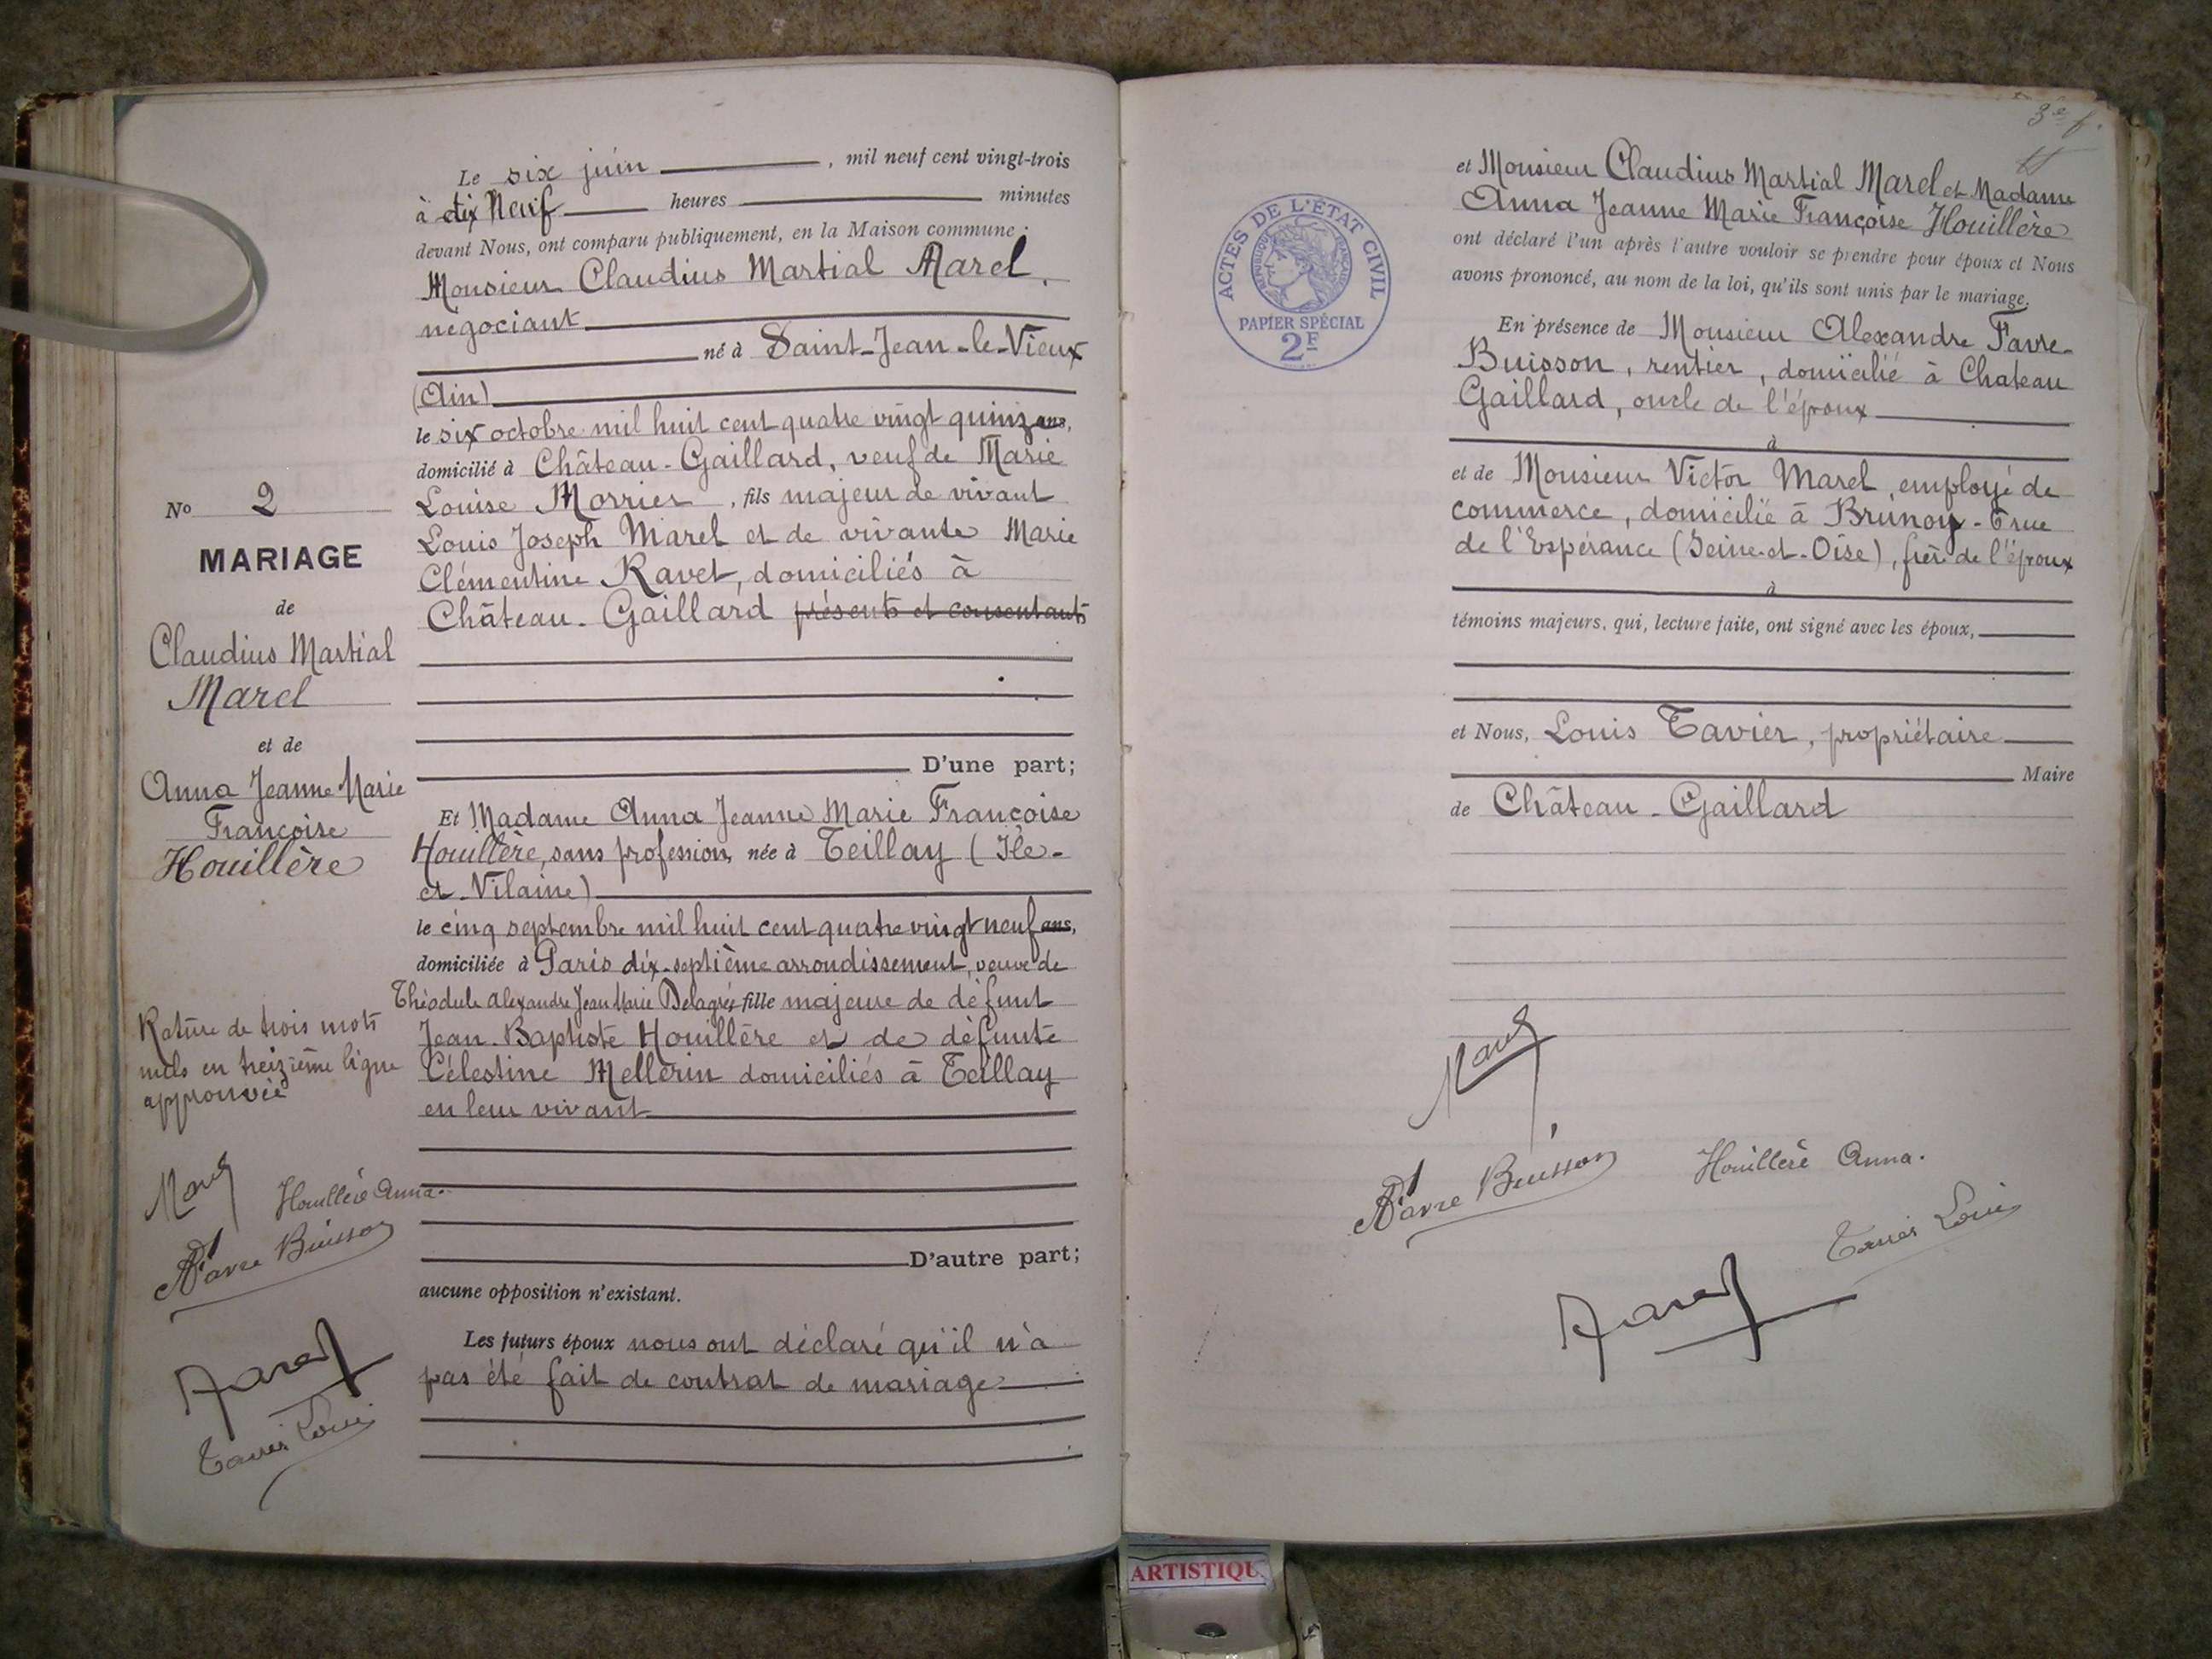 Le six juin, mil neuf cent vingt-trois
à dix Neuf heures minutes
devant Nous, ont comparu publiquement, en la Maison commune :
Monsieur Claudius Martial Marel,
négociant
né à Saint-Jean-le-Vieux
(Ain)
le six octobre mil huit cent quatre vingt quinz ans,
domicilié à Château-Gaillard, veuf de Marie
Louise Morrier, fils majeur de vivant
Louis Joseph Marel et de vivante Marie
Clémentine Ravet, domiciliés à
Château-Gaillard présents et consentants
D'une part;
Et Madame Anna Jeanne Marie Françoise
Houillère, sans profession, née à Teillay (Ile-
et-Vilaine)
le cinq septembre mil huit cent quatre vingt neuf ans,
domiciliée à Paris dix-septième arrondissement, veuve de
Théodule Alexandre Jean Marie Delagrée, fille majeure de défunt
Jean-Baptiste Houillère et de défunte
Célestine Mellerin domiciliés à Teillay
en leur vivant
D'autre part;
aucune opposition n'existant.
Les futurs époux nous ont déclaré qu'il n'a
pas été fait de contrat de mariage
No 2
MARIAGE
de
Claudius Martial
Marel
et de
Anna Jeanne Marie
Françoise
Houillère
Rature de trois mots
nuls en treizième ligne
approuvée
Marel
Houillère Anna.
Favre Buisson
Marel
Tavier Louis
3e f.
ACTES DE L'ÉTAT CIVIL
RÉPUBLIQUE FRANÇAISE
PAPIER SPÉCIAL
2F
et Monsieur Claudius Martial Marel et Madame
Anna Jeanne Marie Françoise Houillère
ont déclaré l'un après l'autre vouloir se prendre pour époux et Nous
avons prononcé, au nom de la loi, qu'ils sont unis par le mariage.
En présence de Monsieur Alexandre Favre-
Buisson, rentier, domicilié à Chateau
Gaillard, oncle de l'époux
à
et de Monsieur Victor Marel, employé de
commerce, domicilié à Brunoy - 6 rue
de l'Espérance (Seine-et-Oise), frère de l'époux
à
témoins majeurs, qui, lecture faite, ont signé avec les époux,
et Nous, Louis Tavier, propriétaire
Maire
de Château-Gaillard
Marel
Favre Buisson
Houillère Anna.
Tavier Louis
Marel
ARTISTIQU